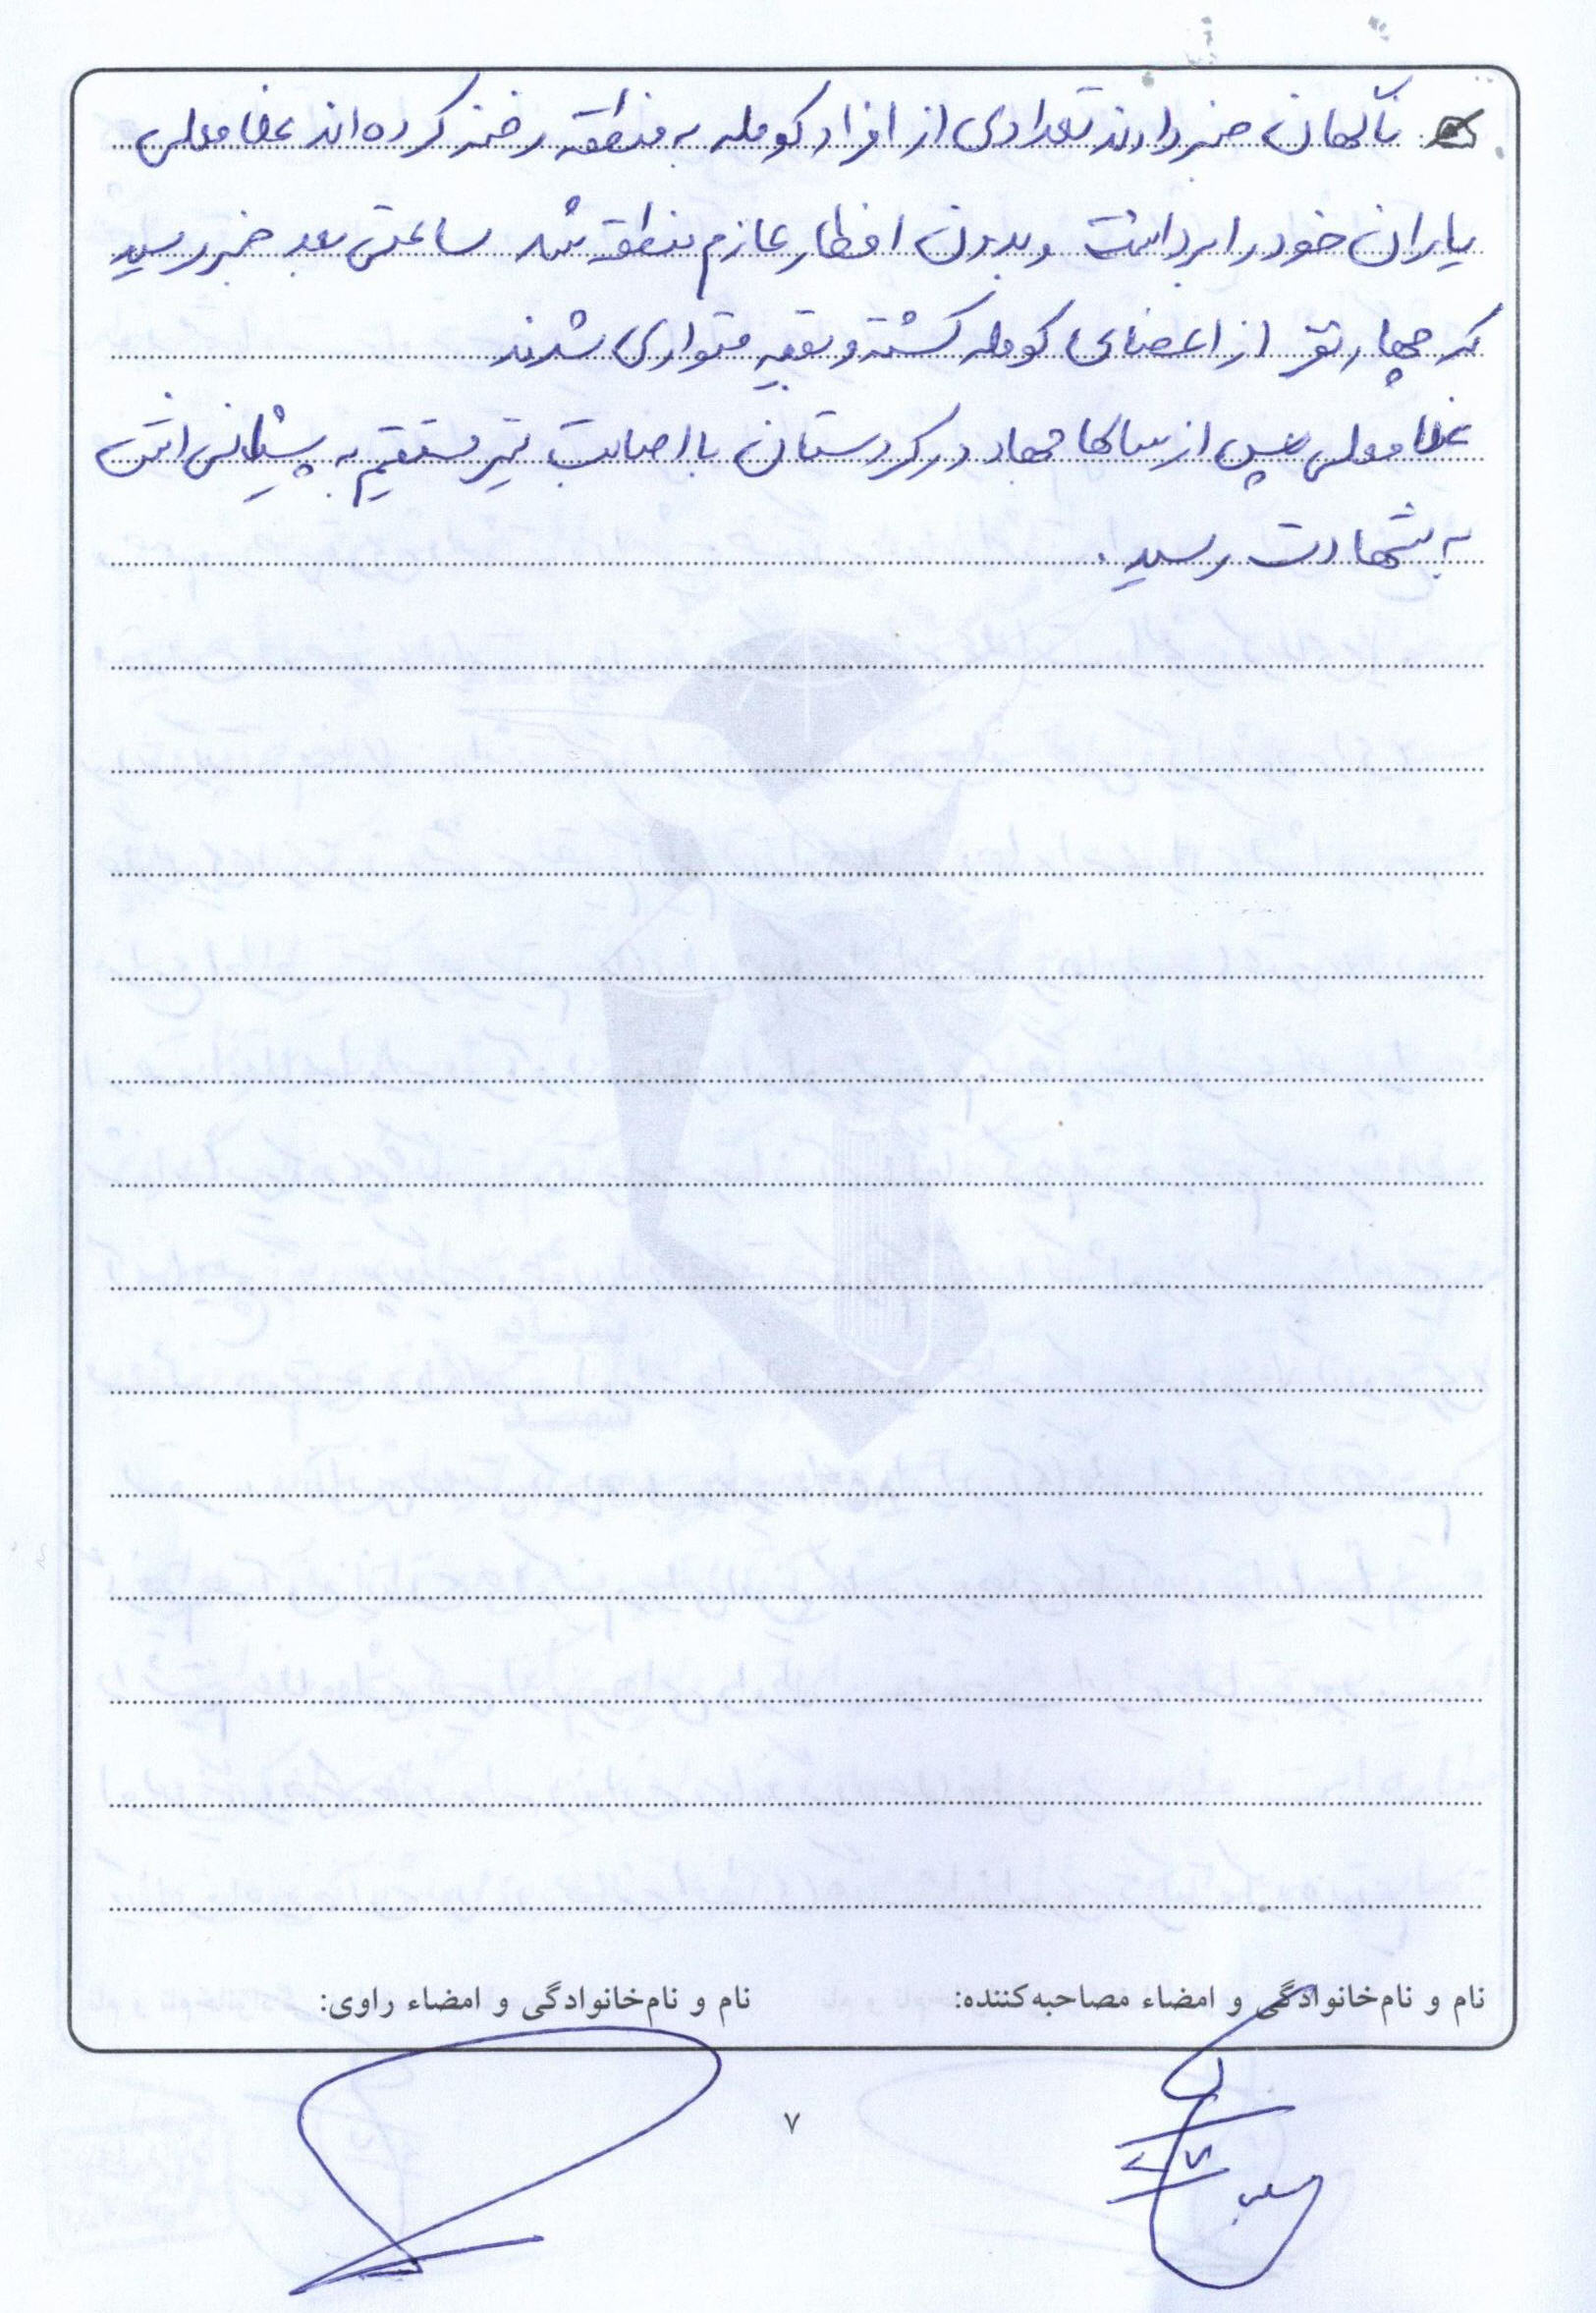 ناگهان خبر دادند تعدادی از افراد کومله به منطقه رخنه کرده اند غلامعلی
یاران خود را برداشت و بدون افطار عازم منطقه شد ساعتی بعد خبر رسید
که چهار نفر از اعضای کومله کشته و بقیه متواری شدند
غلامعلی پس از سالها جهاد در کردستان با اصابت تیر مستقیم به پیشانی اش
به شهادت رسید.
نام و نام‌خانوادگی و امضاء مصاحبه‌کننده:
نام و نام‌خانوادگی و امضاء راوی:
۷